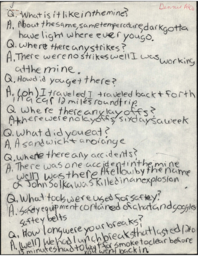 Q. What is it like in the mine?
A. About the same, same temperature, dark, gotta
have light where ever you go.
Q. Where there any strikes?
A. There were no strikes well I was working
at the mine.
Q. How did you get there?
A. (oh) I traveled I traveled back + forth
in a car 12 miles round trip
Q. Where there any lay offs?
A. there were no layoffs, sundays a week
Q. What did you eat?
A. A sandwich + an orange
Q. Where there any accidents?
A. There was one accident in the mine
well I was there. A fellow by the name
of John Solka was killed in an explosion
Q. What tools were used for safety?
A. safety equipment contained of a hat and goggles
safety belts
Q. How long were your breaks?
A. (Well) we had lunch break that lasted (30
minutes had to let the smoke to clear before
went back in